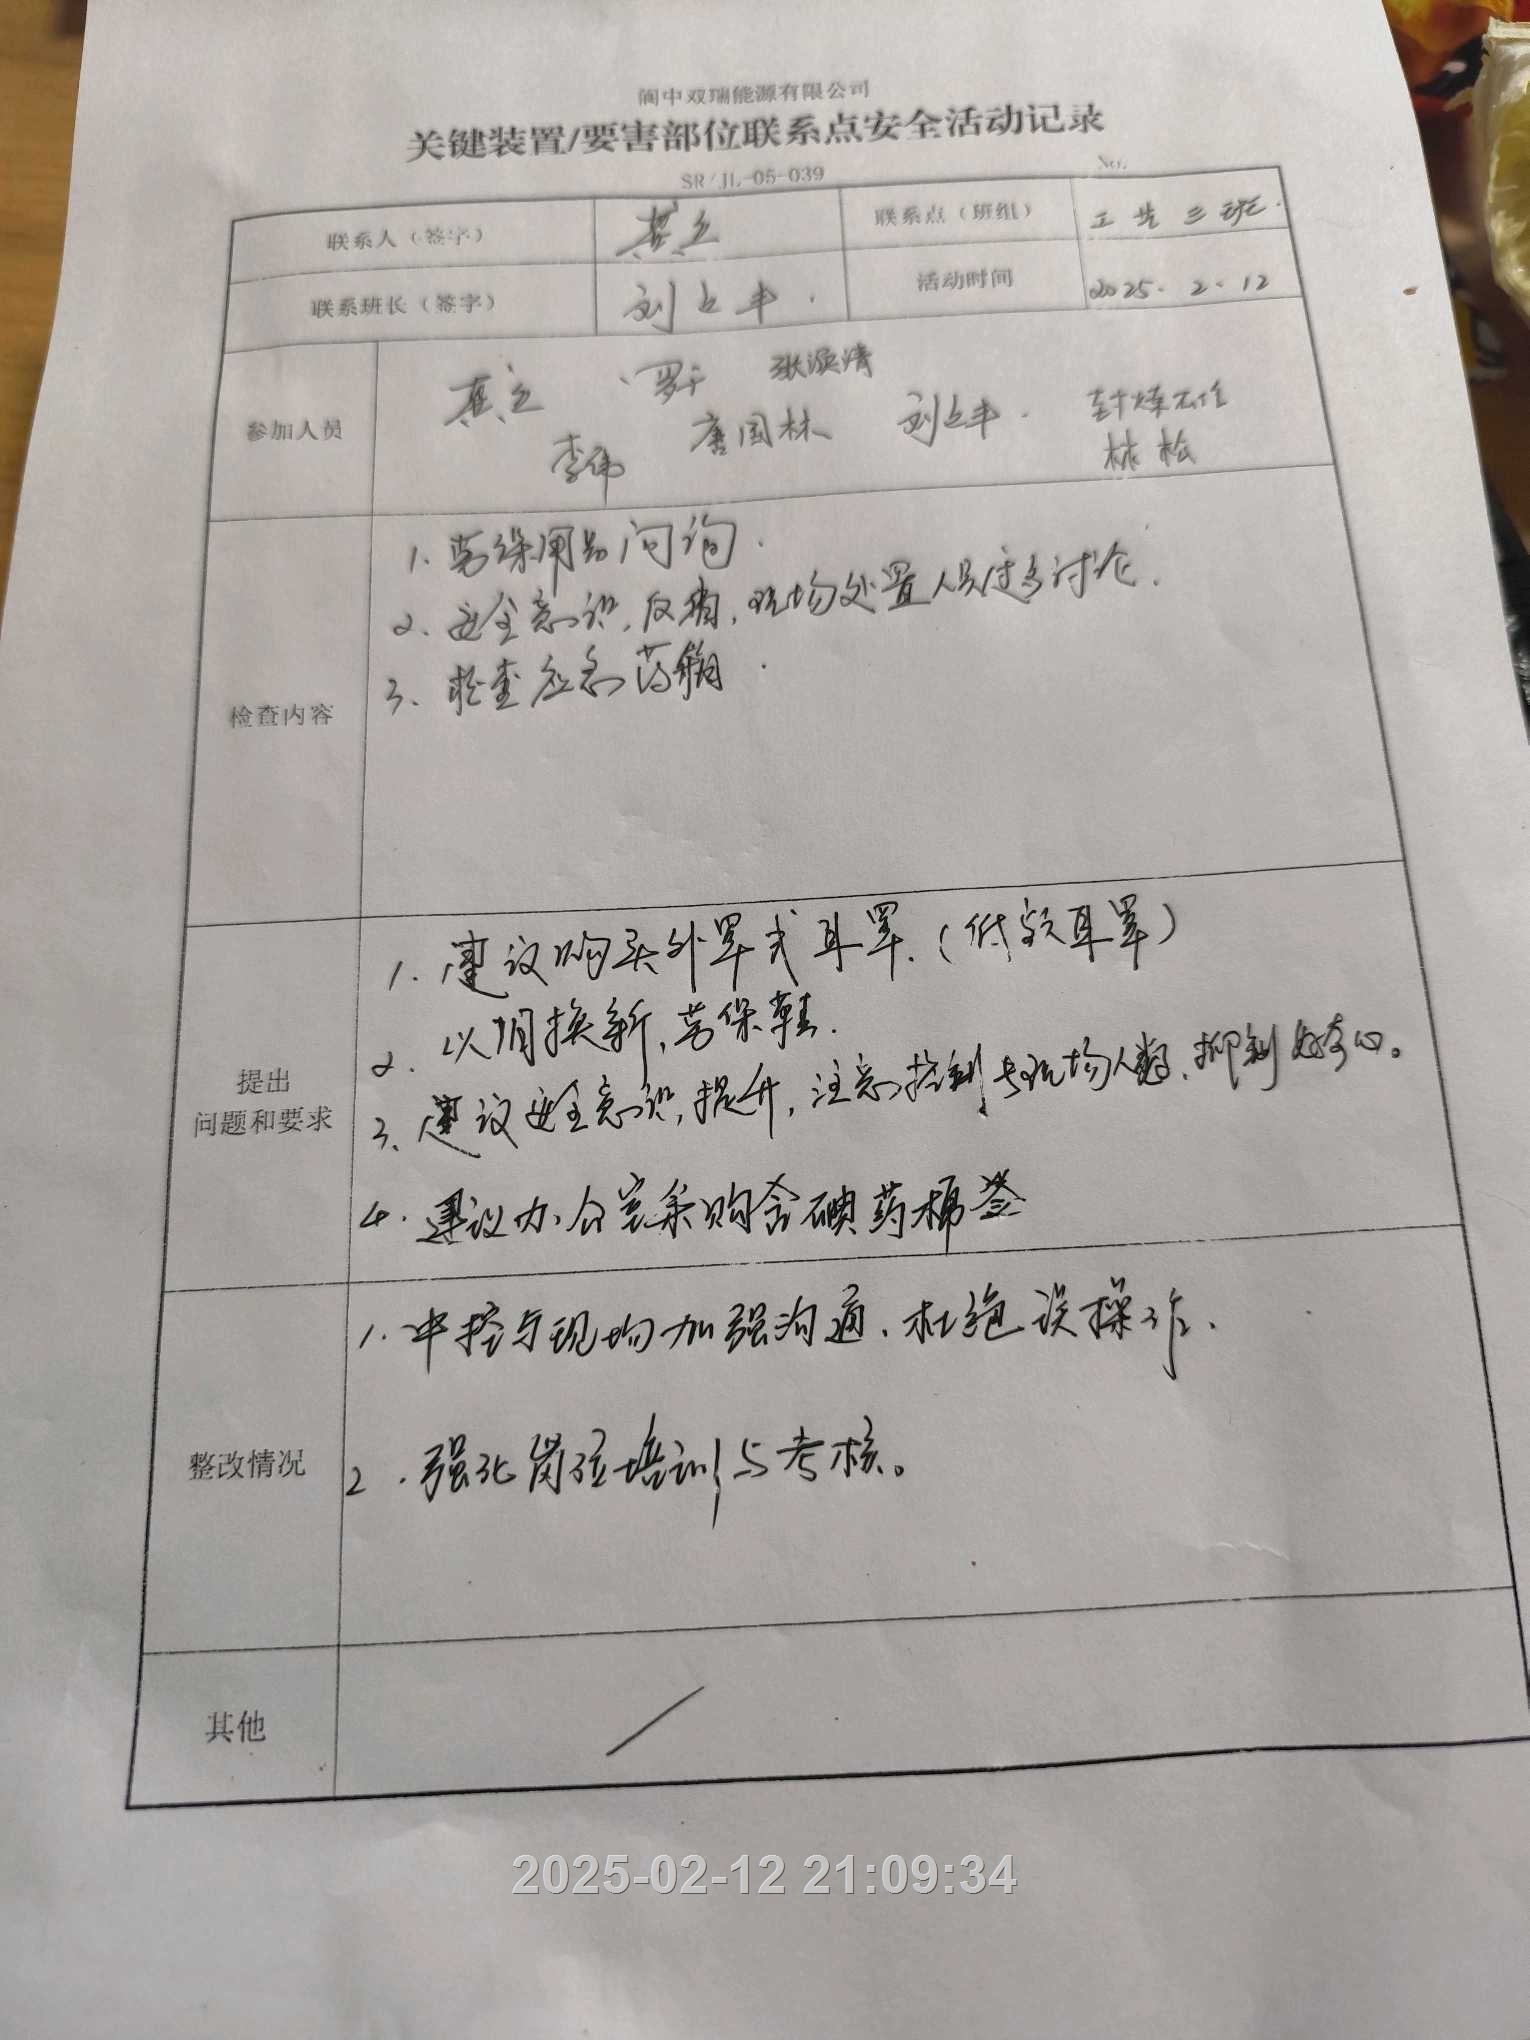 阆中双瑞能源有限公司
关键装置/要害部位联系点安全活动记录
SR/JL-05-039 No.
联系人（签字） 联系点（班组） 工艺三班.
联系班长（签字） 活动时间 2025.2.12
参加人员
李伟 唐国林 林松
检查内容
1. 劳保用品问询.
2、安全意识,反稍,现场处置人员过多讨论.
3、检查应急药箱.
提出
问题和要求
1. 建议购买外罩式耳罩.(低频耳罩)
2. 以旧换新,劳保鞋.
3、建议安全意识,提升,注意控制现场人数,抑制好奇心。
4. 建议办公室采购含碘药棉签
整改情况
1. 中控与现场加强沟通.杜绝误操作.
2.强化岗位培训与考核。
其他 /
2025-02-12 21:09:34